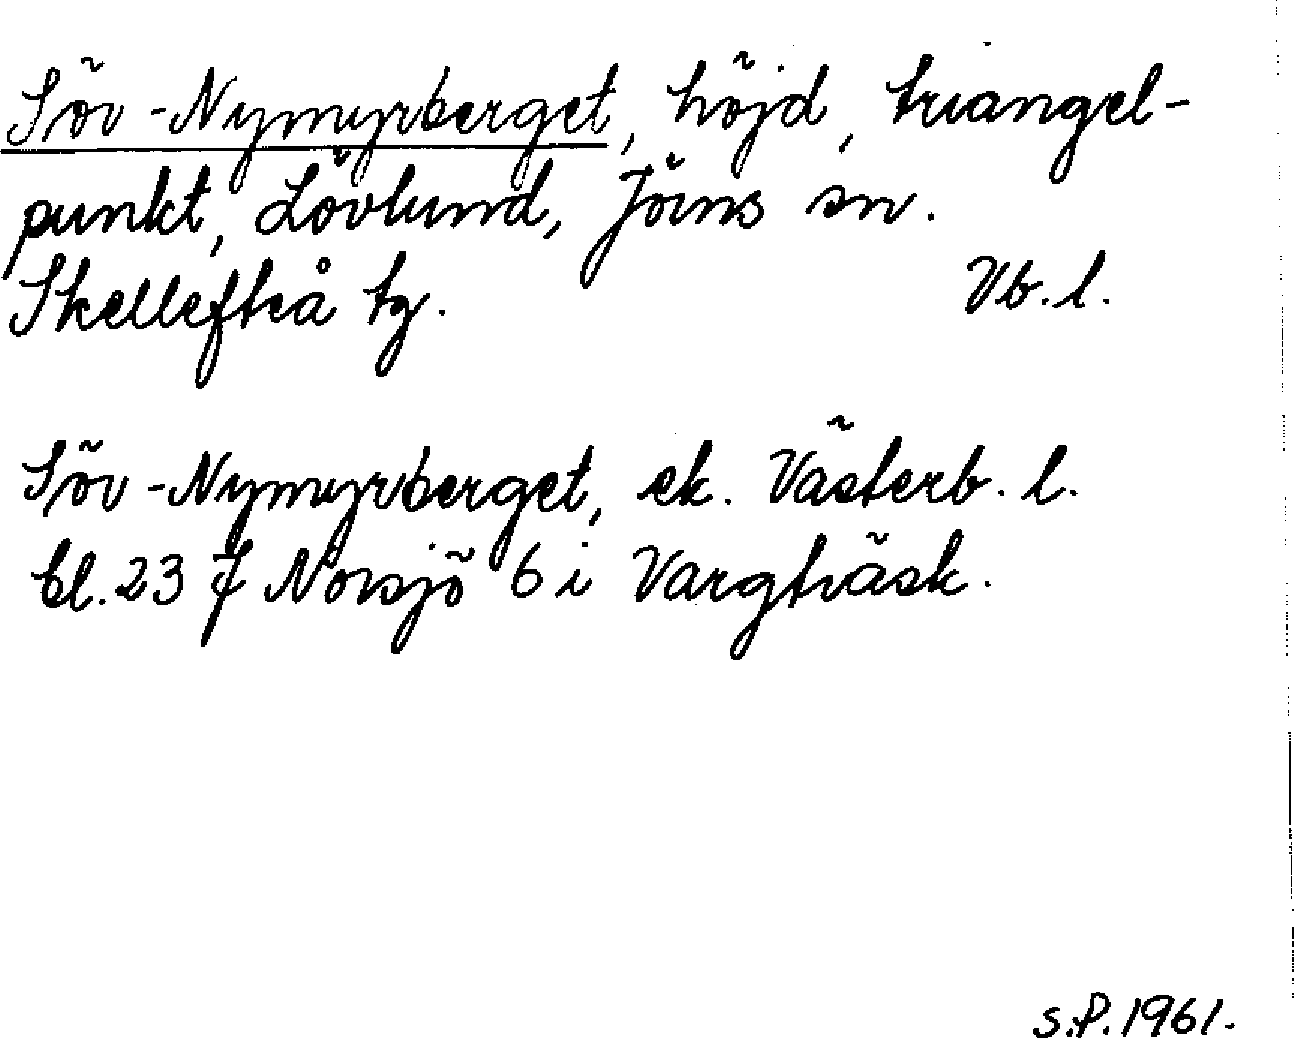 Söv-Nymyrberget, höjd, triangel-
punkt, Lövlund, Jörns sn.
Skellefteå tg. Vb. l.
Söv-Nymyrberget, ek. Västerb. l.
bl. 23 J Norsjö 6 i Vargträsk.
S.P. 1961.